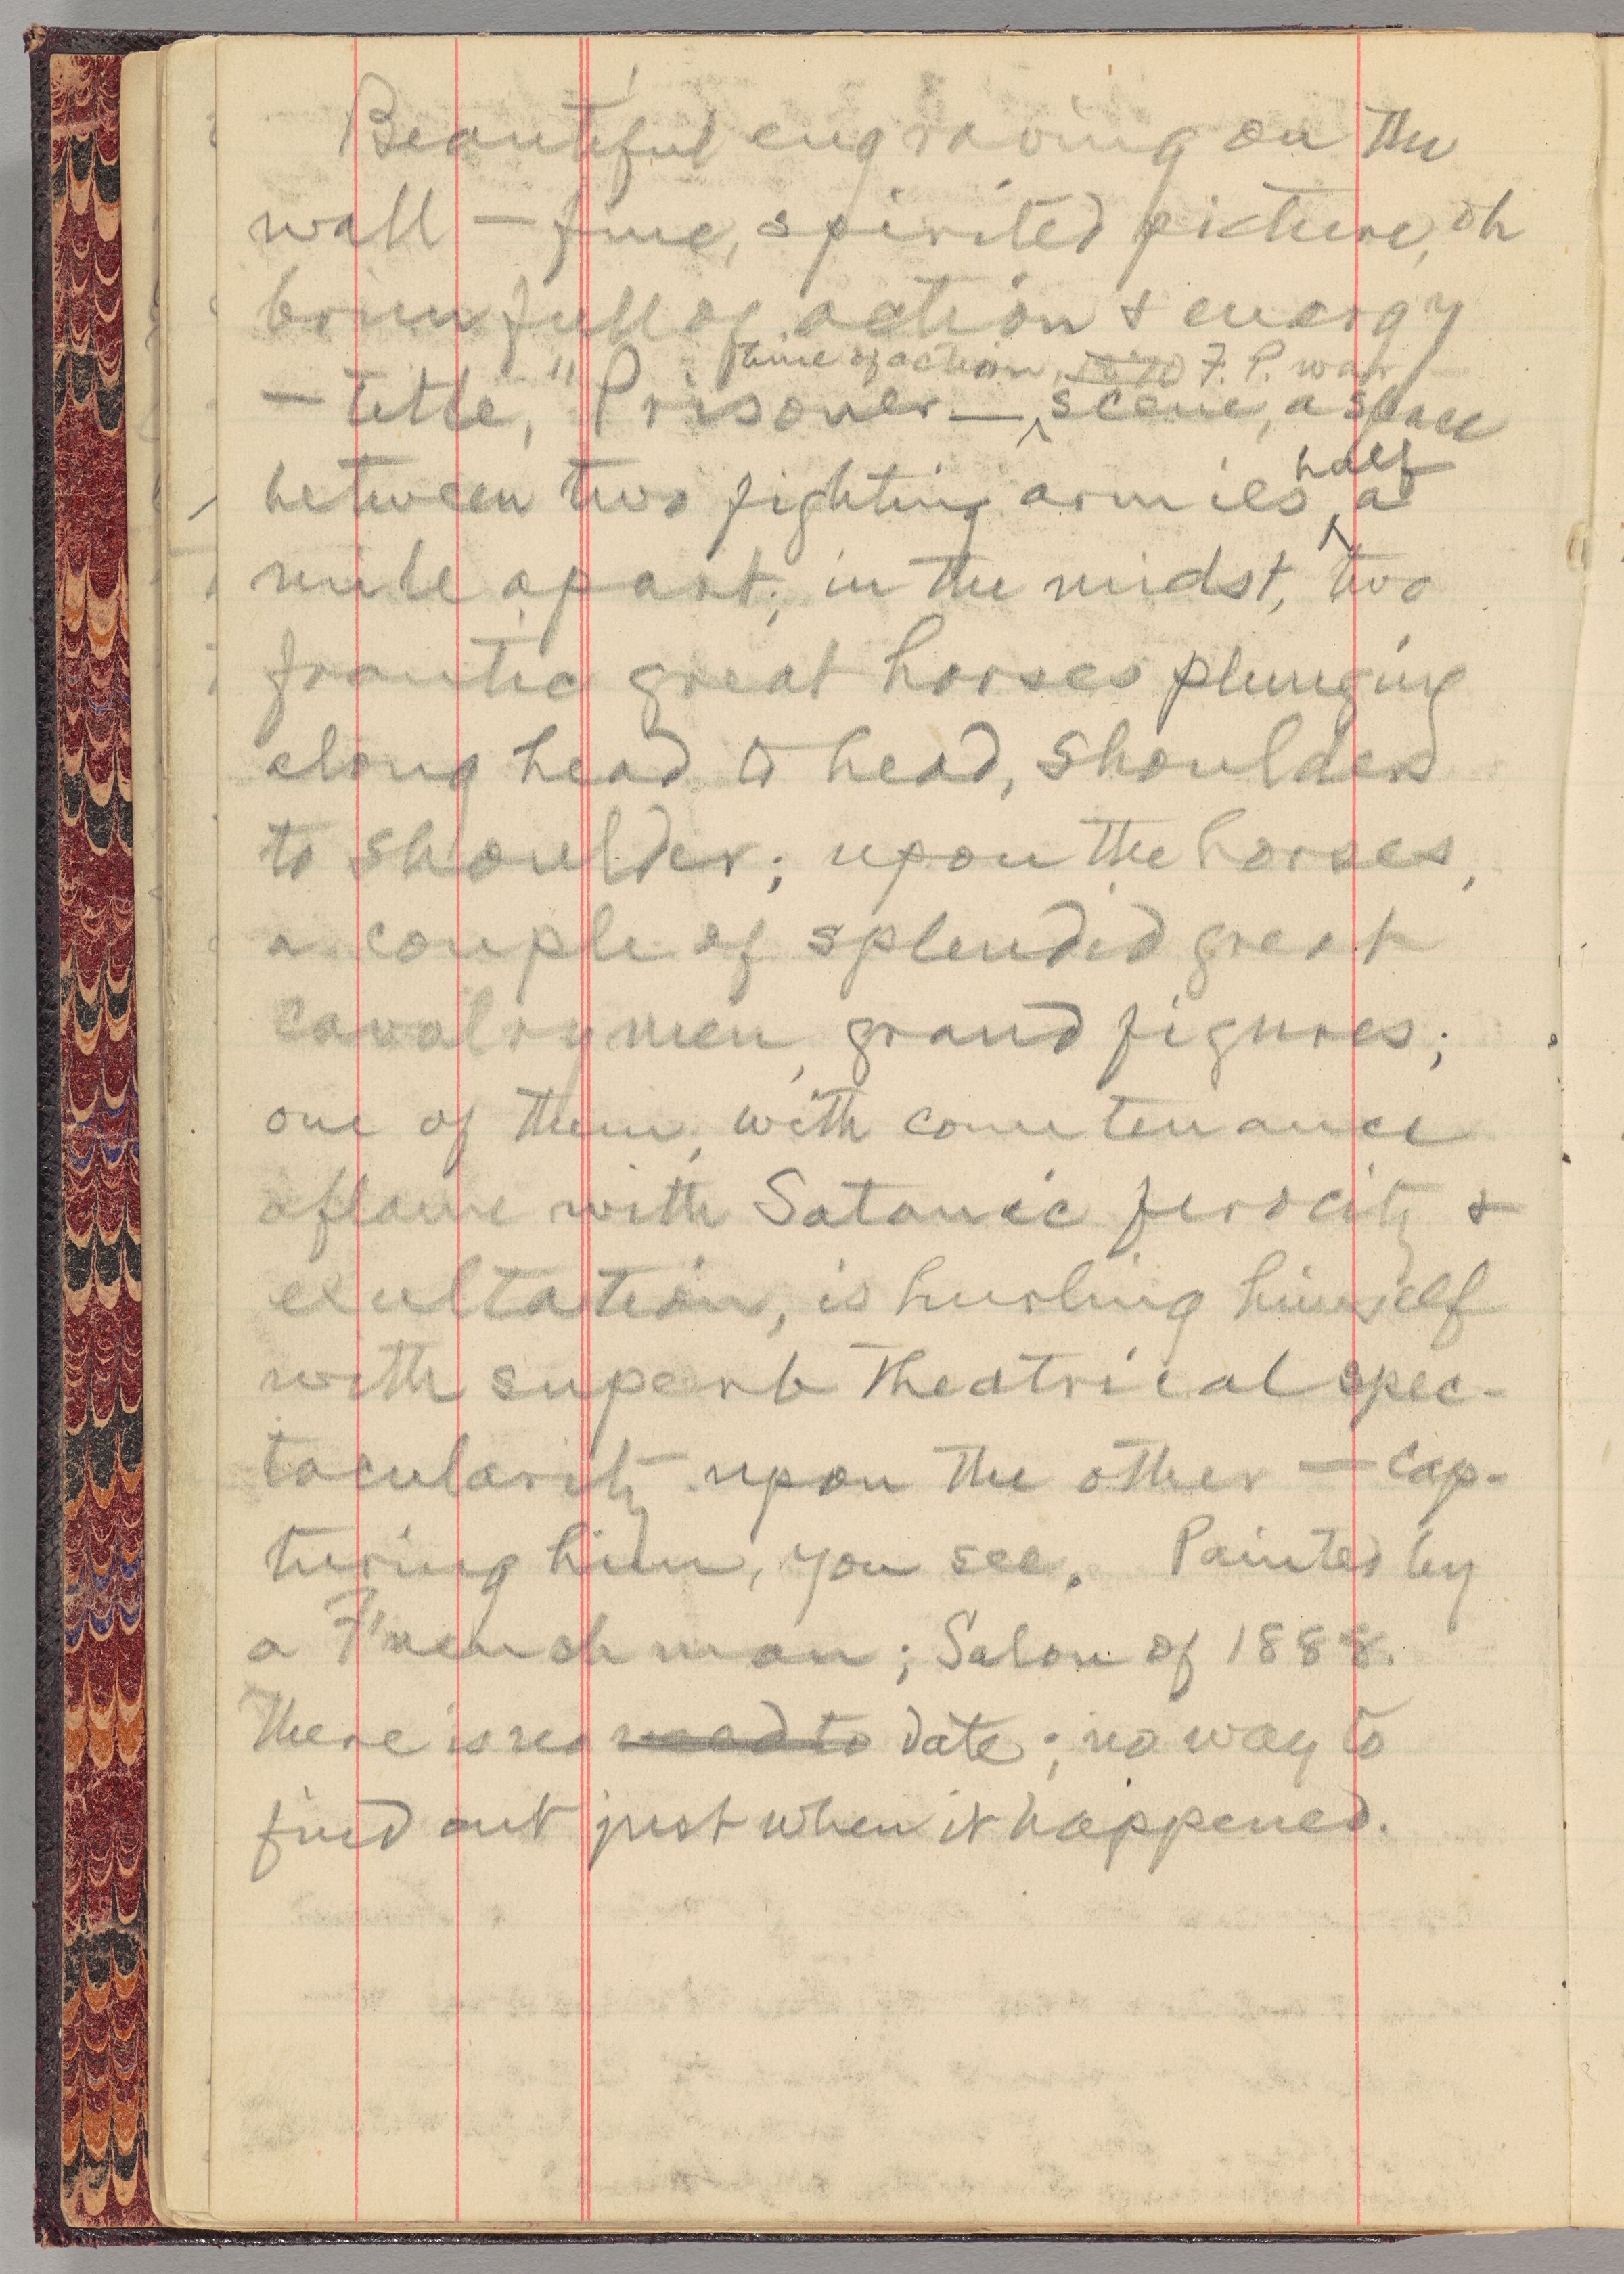 Beautiful engraving on the
wall — fine, spirited picture, oh
brim full of action & energy
time of action, F. P. war
— title, "Prisoner — ‸ scene, a space
half
between two fighting armies ‸ a
mile apart; in the midst, two
frantic great horses plunging
along head to head, shoulder
to shoulder; upon the horses,
a couple of splendid great
cavalrymen, grand figures;
one of them, with countenance
aflame with Satanic ferocity &
exultation, is hurling himself
with superb theatrical spec-
tacularity upon the other — cap-
turing him, you see. Painted by
a Frenchman; Salon of 1888.
There is no need to date; no way to
find out just when it happened.